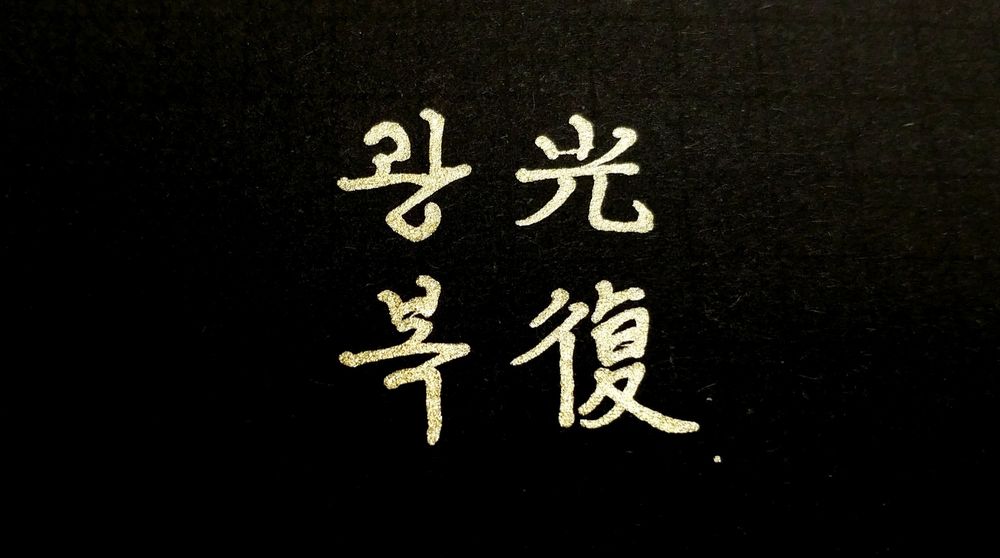 광 光
복 復